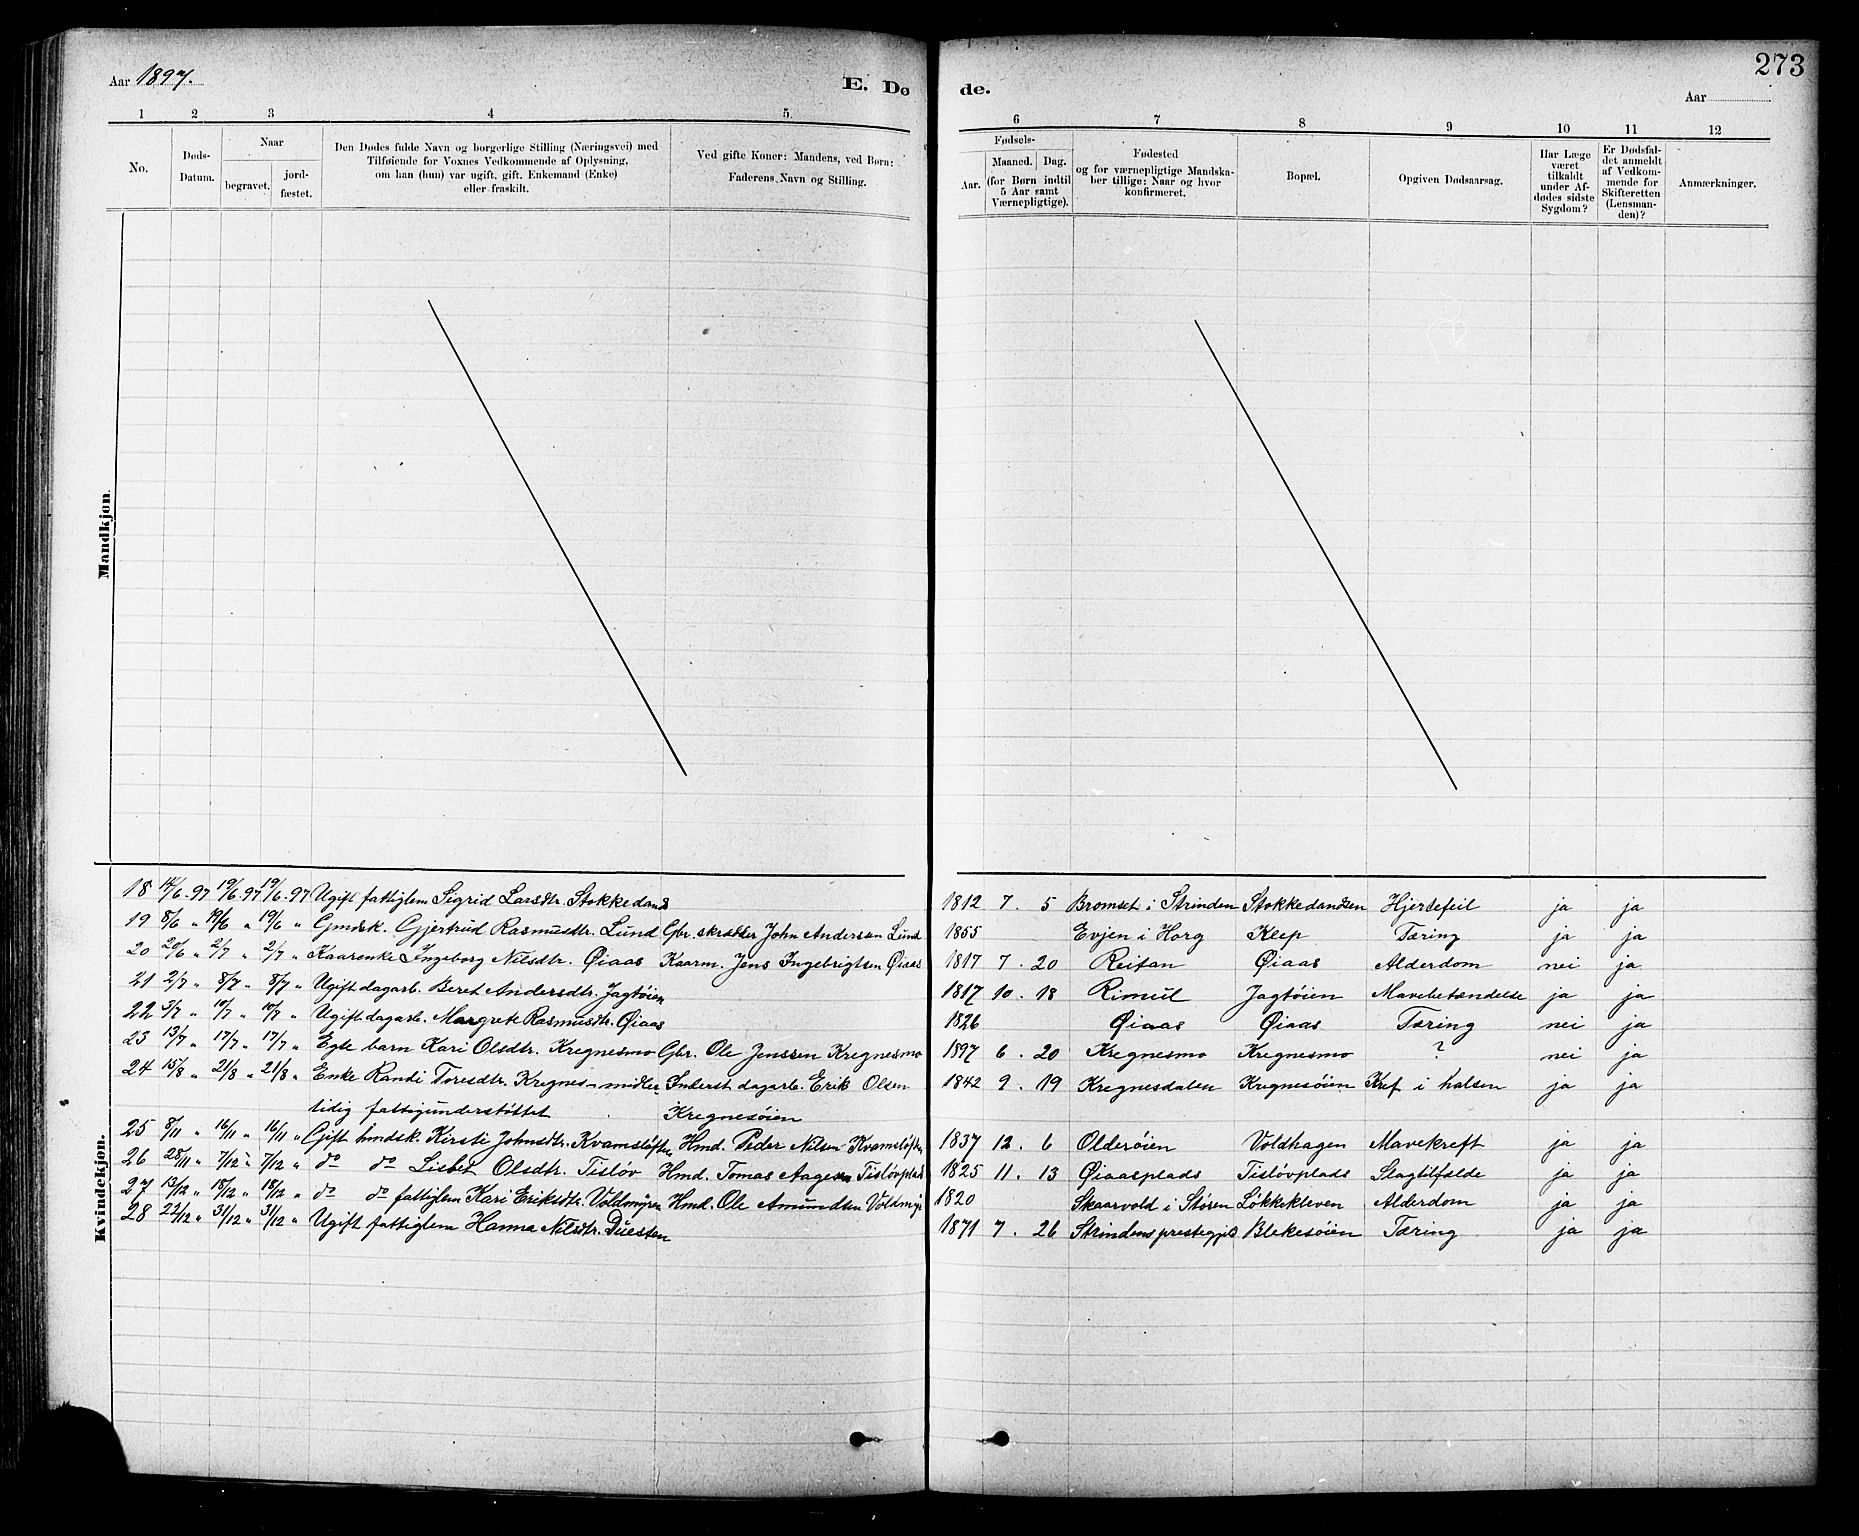 Aar 1897.
E. Dø
de.
273
Aar
1 2 3 4 5.
6 7 8 9 10 11 12
No.
Døds-Datum.
Naar
begravet.
jordfæstet.
Den Dødes fulde Navn og borgerlige Stilling (Næringsvei) med
Tilføiende for Voxnes Vedkommende af Oplysning,
om han (hun) var ugift, gift, Enkemand (Enke)
eller fraskilt.
Ved gifte Koner: Mandens, ved Børn:
Faderens Navn og Stilling.
Fødsels-
Aar.
Maaned. Dag.
(for Børn indtil
5 Aar samt
Værnepligtige).
Fødested
og for værnepligtige Mandska-
ber tillige: Naar og hvor
konfirmeret.
Bopæl.
Opgiven Dødsaarsag.
Har Læge
været
tilkaldt
under Af-
dødes sidste
Sygdom?
Er Dødsfal-
det anmeldt
af Vedkom-
mende for
Skifteretten
(Lensman-
den)?
Anmærkninger.
Mandkjøn.
Kvindekjøn.
18 14/6 97 19/6 97 19/6 97 Ugift fattiglem Sigrid Larsdtr. Stokkedands 1812 7. 5 Bromset i Strinden Stokkedandsen Hjertefeil ja ja
19 8/6 " 19/6 " 19/6 " Gmdsk. Gjertrud Rasmusdtr. Lund Gbr. skrædder John Andersen Lund 1855 Evjen i Horg Klep Tæring ja ja
20 20/6 " 2/7 " 2/7 " Kaarenke Ingeborg Nilsdtr. Øiaas Kaarm. Jens Ingebrigtsen Øiaas 1817 7. 20 Reitan Øiaas Alderdom nei ja
21 2/7 " 8/7 " 8/7 " Ugift dagarb. Beret Andersdtr. Jagtøien 1817 10. 18 Rimul Jagtøien Mavebetændelse ja ja
22 3/7 " 10/7 " 10/7 " Ugift dagarb. Margrete Rasmusdtr. Øiaas 1826 Øiaas Øiaas Tæring nei ja
23 13/7 " 17/7 " 17/7 " Egte barn Kari Olsdtr. Kregnesmo Gbr. Ole Jenssen Kregnesmo 1897 6. 20 Kregnesmo Kregnesmo ? nei ja
24 15/8 " 21/8 " 21/8 " Enke Randi Toresdtr. Kregnes - midler- Inderst dagarb. Erik Olsen 1842 9. 19 Kregnesdalen Kregnesøien Kref i halsen ja ja
tidig fattigunderstøttet Kregnesøien
25 8/11 " 16/11 " 16/11 " Gift hmdsk. Kirsti Johnsdtr. Kvamsløften Hmd. Peder Nilsen Kvamsløften 1837 12. 6 Olderøien Voldhagen Mavekreft ja ja
26 28/11 " 7/12 " 7/12 " do do Lisbet Olsdtr. Tisløv Hmd. Tomas Aagesen Tisløvplads 1825 11. 13 Øiaasplads Tisløvplads Slagtilfælde ja ja
27 13/12 " 18/12 " 18/12 " do do fattiglem Kari Eriksdtr. Voldmyren Hmd. Ole Amundsen Voldmyr 1820 Skaarvold i Støren Løkkekleven Alderdom ja ja
28 22/12 " 31/12 " 31/12 " Ugift fattiglem Hanna Nilsdtr. Duesten 1871 7. 26 Strindens prestegjeld Blekesøien Tæring ja ja